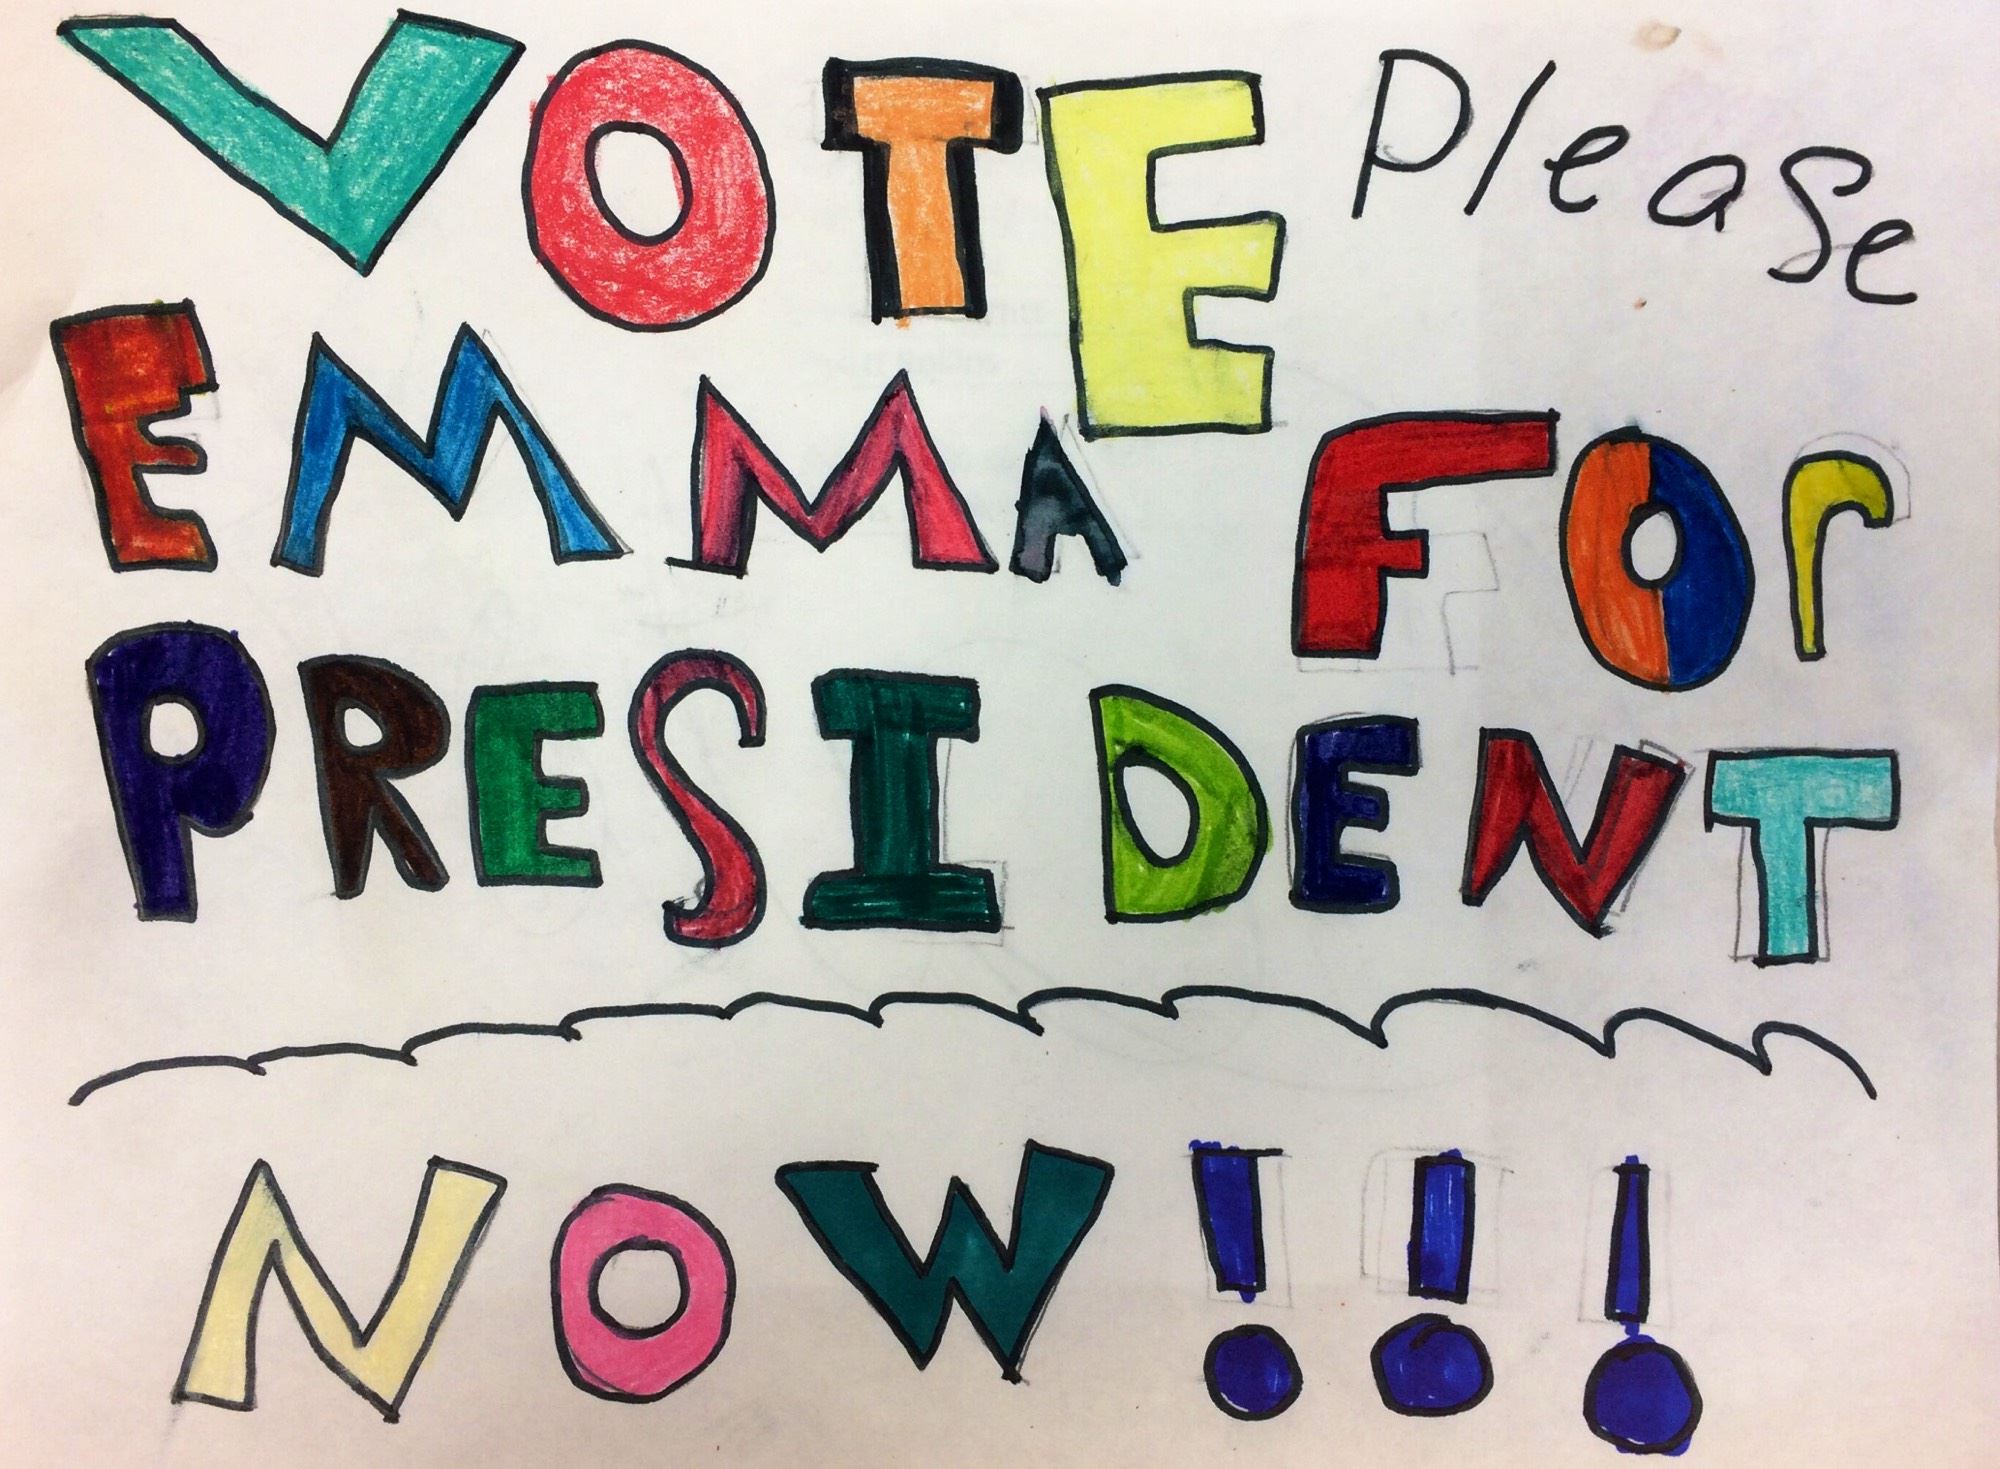 VOTE Please
EMMA FOr
PRESIDENT
NOW!!!